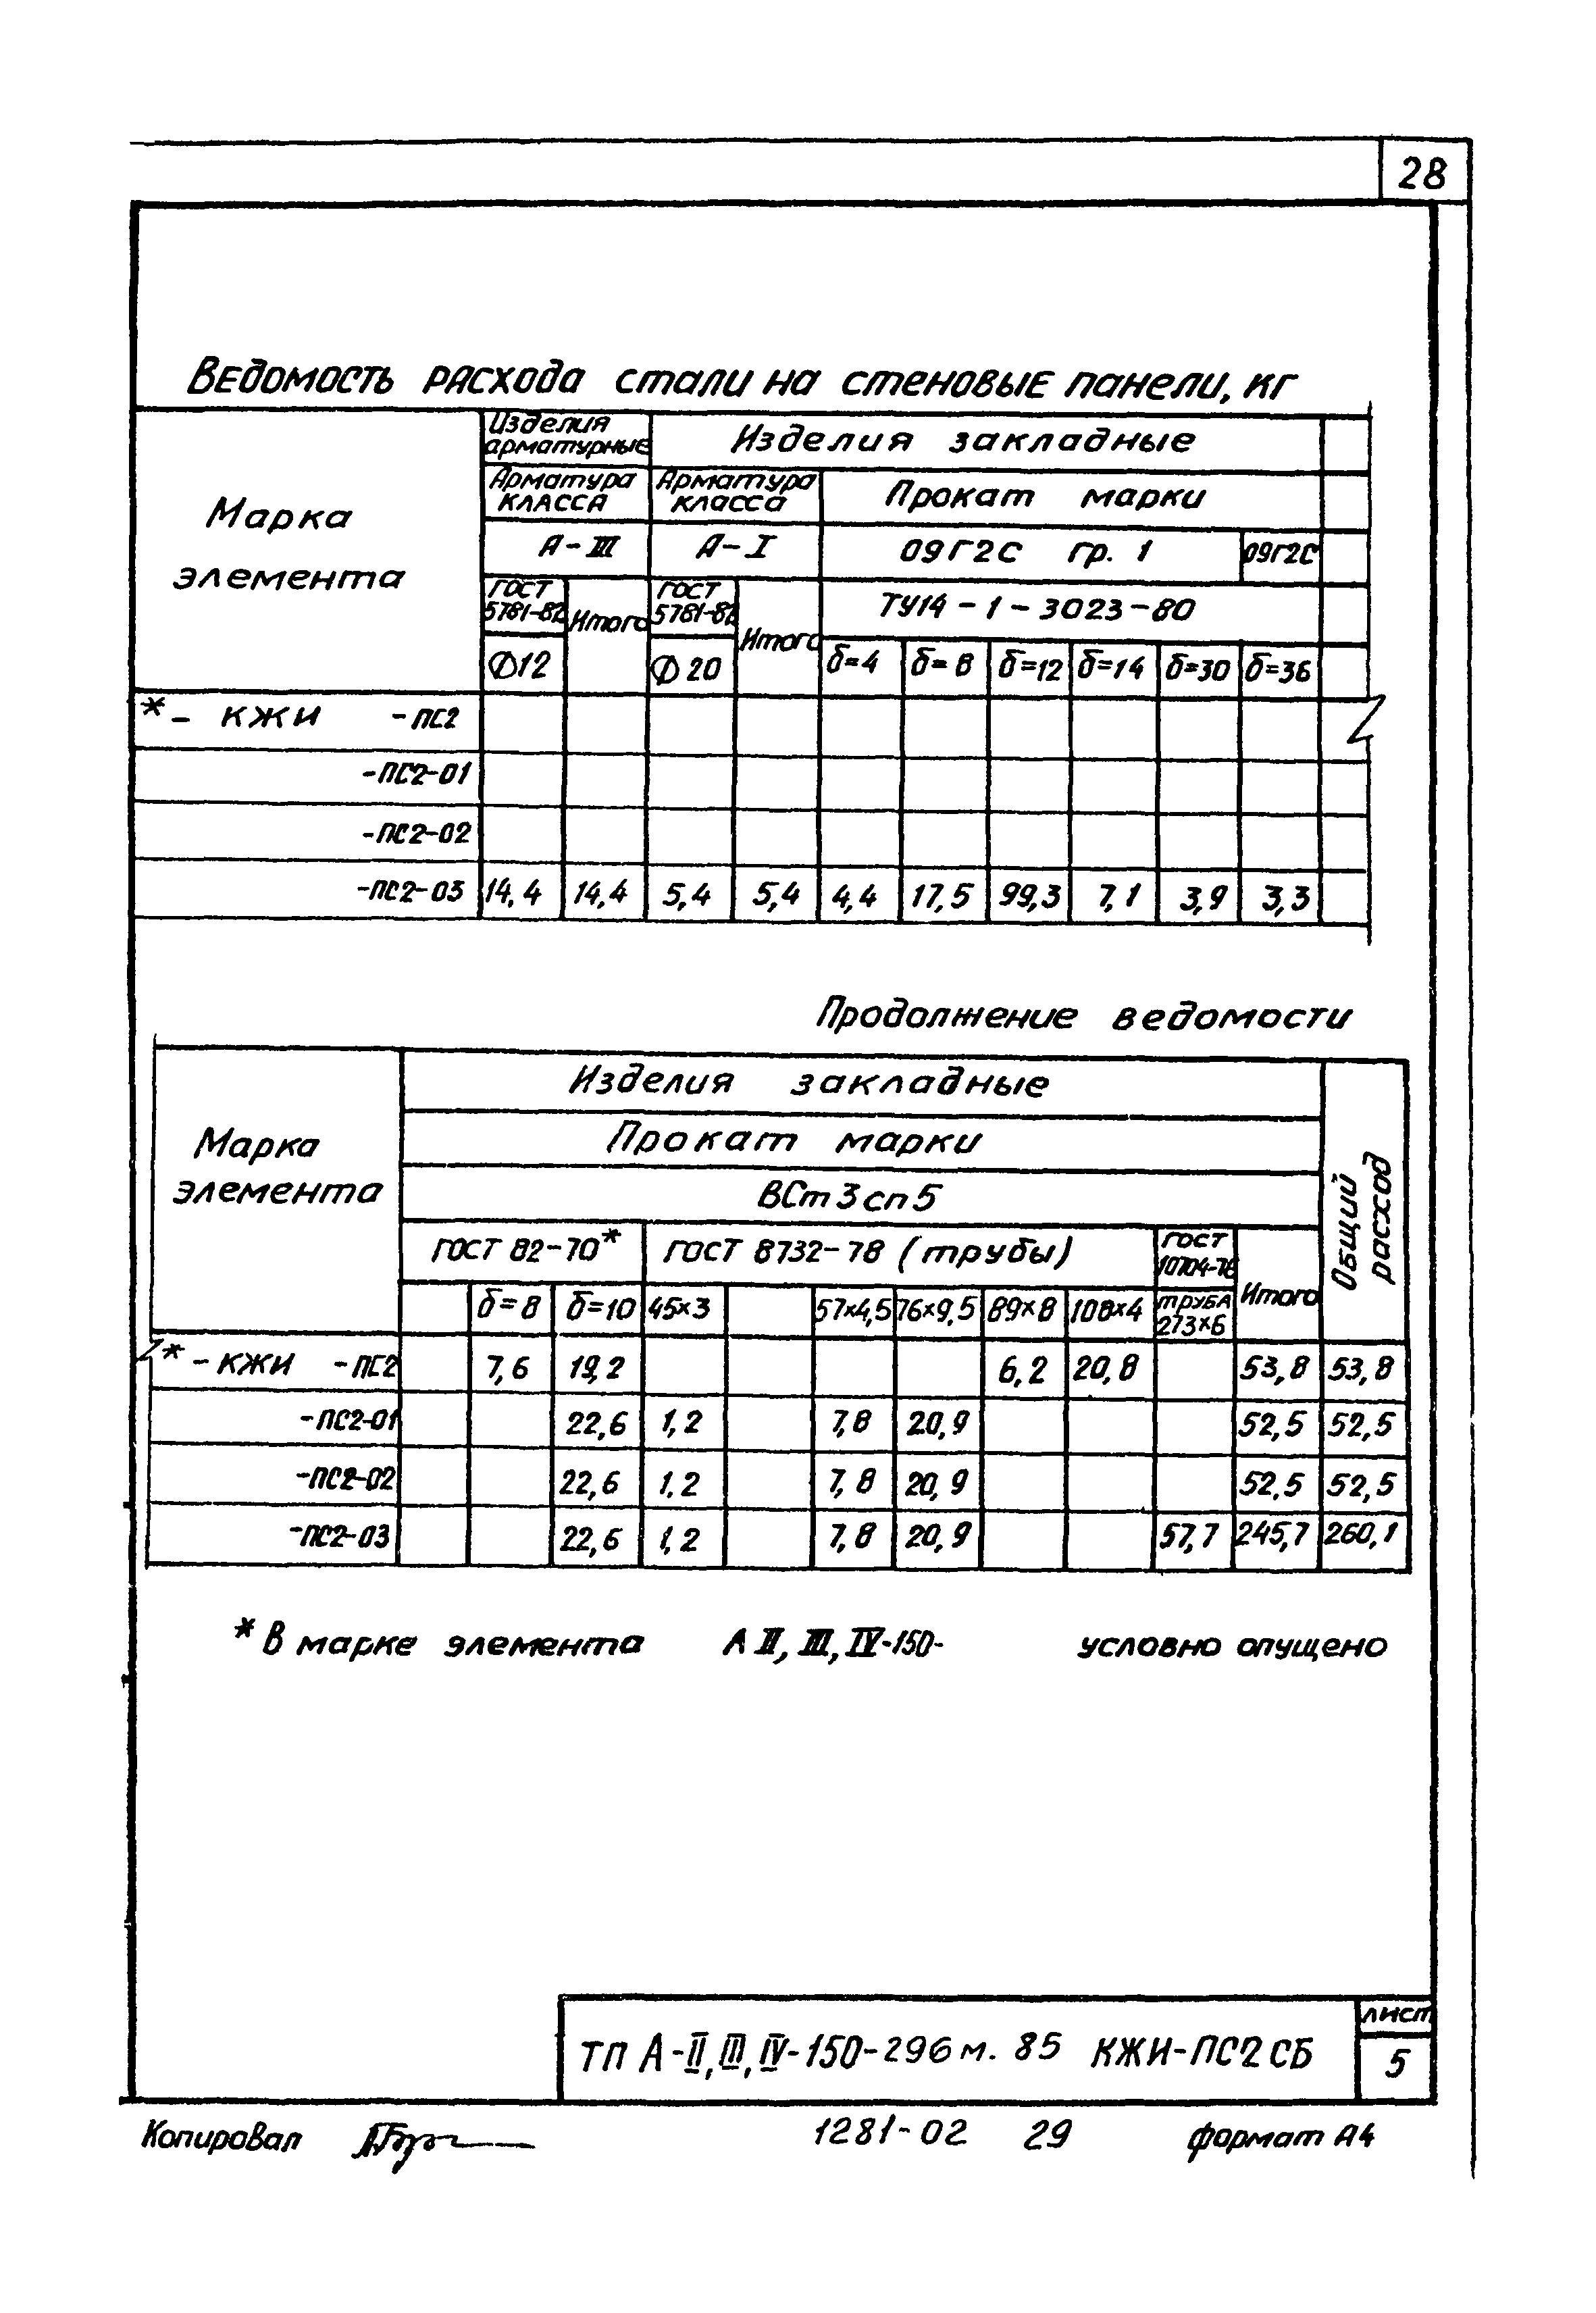 28
Ведомость расхода стали на стеновые панели, кг
Марка элемента
Изделия арматурные
Изделия закладные
Арматура класса
Арматура класса
Прокат марки
А-III
А-I
09Г2С гр. 1
09Г2С
ГОСТ 5781-82
Итого
ГОСТ 5781-82
Итого
ТУ14-1-3023-80
Ф12
Ф20
δ=4 δ=8 δ=12 δ=14 δ=30 δ=36
*- КЖИ -ПС2
-ПС2-01
-ПС2-02
-ПС2-03 14,4 14,4 5,4 5,4 4,4 17,5 99,3 7,1 3,9 3,3
Продолжение ведомости
Марка элемента
Изделия закладные
Общий расход
Прокат марки
ВСт3сп5
ГОСТ 82-70*
ГОСТ 8732-78 (трубы)
ГОСТ 10704-76
Итого
δ=8 δ=10 45×3 57×4,5 76×9,5 89×8 108×4 труба 273×6
*-КЖИ -ПС2 7,6 19,2 6,2 20,8 53,8 53,8
-ПС2-01 22,6 1,2 7,8 20,9 52,5 52,5
-ПС2-02 22,6 1,2 7,8 20,9 52,5 52,5
-ПС2-03 22,6 1,2 7,8 20,9 57,7 245,7 260,1
* В марке элемента А II, III, IV-150- условно опущено
ТП А-II, III, IV-150-296м. 85 КЖИ-ПС2СБ
лист
5
Копировал
1281-02 29 формат А4